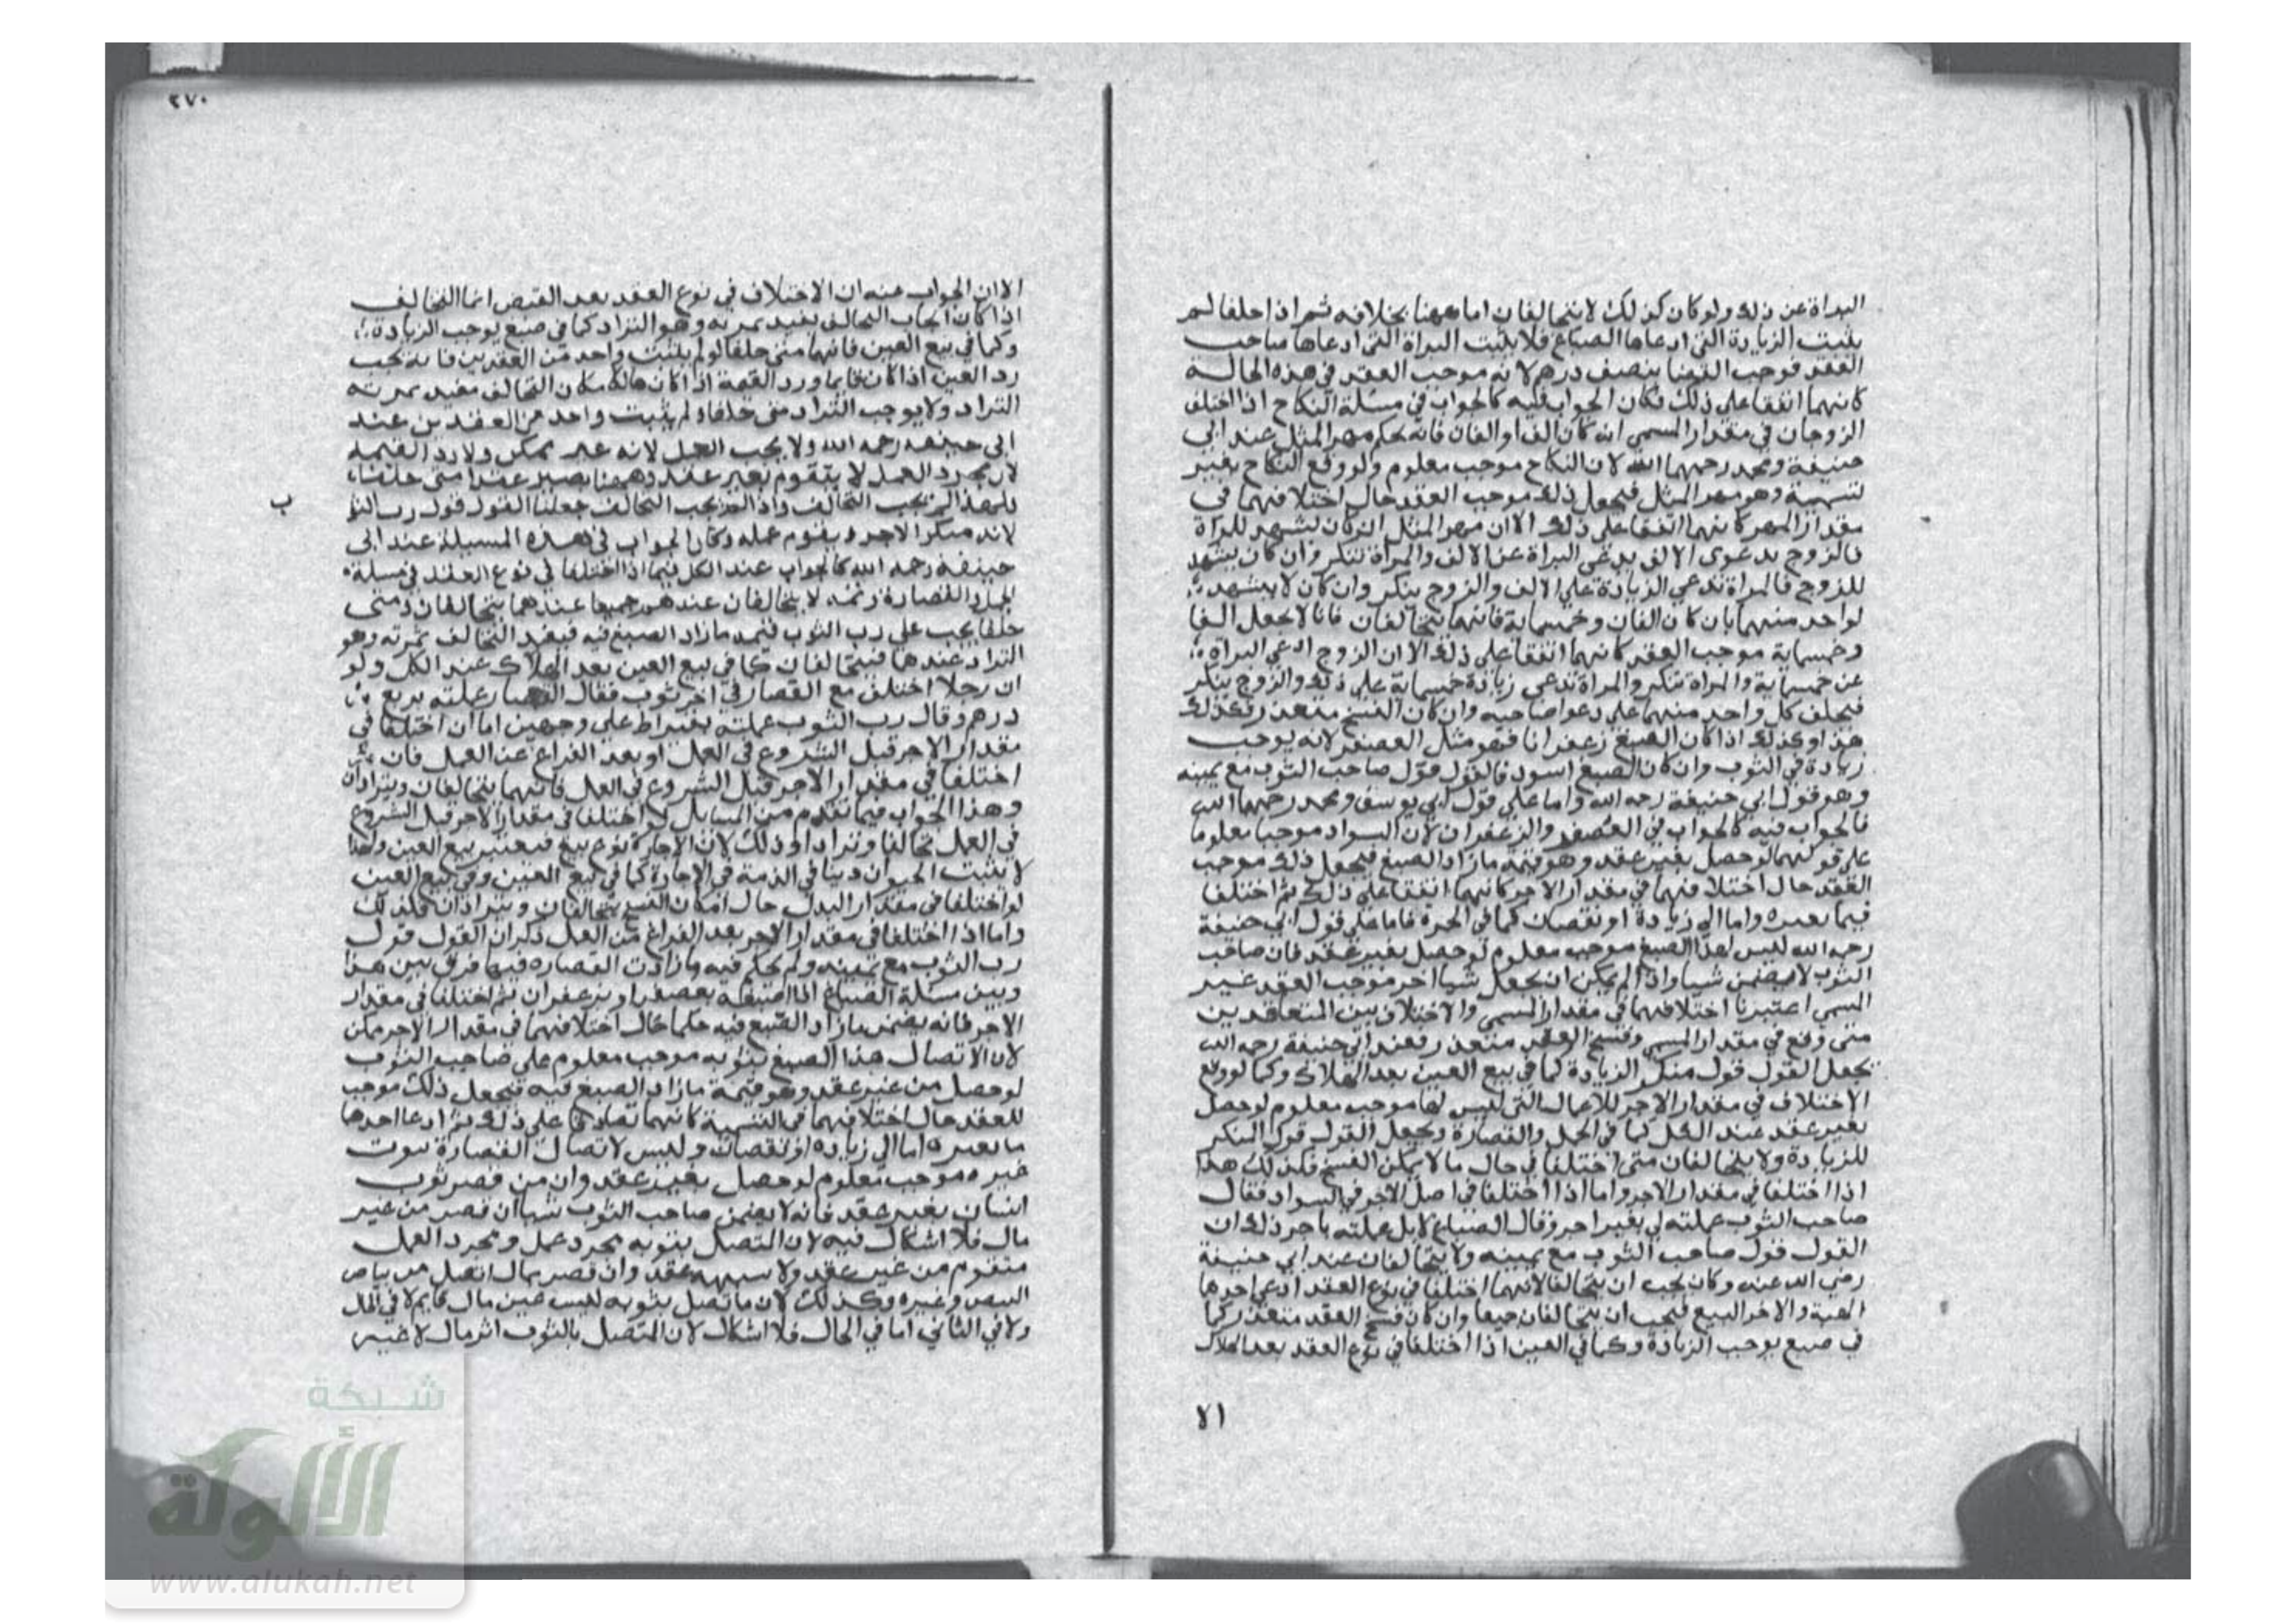 البراة عن ذلك ولو كان كذلك لا يتحالفان اما ههنا بخلافه ثم اذا حلفا لم
يثبت الزيادة التي ادعاها الصباغ فلا يثبت البراة التي ادعاها صاحب
العقد فوجب القضا بنصف درهم لانه موجب العقد في هذه الحالة
كانهما اتفقا على ذلك فكان الجواب فيه كالجواب في مسئلة النكاح اذا اختلف
الزوجان في مقدار المسمى انه كان الف او الفان فانه يحكم مهر المثل عند ابي
حنيفة ومحمد رحمهما الله لان النكاح موجب معلوم ولو وقع النكاح بغير
تسمية وهو مهر المثل فيجعل ذلك موجب العقد حال اختلافهما في
مقدار المهر كانهما اتفقا على ذلك الا ان مهر المثل ان كان يشهد للمراة
فالزوج بدعوى الالف يدعي البراة عن الالف والمراة تنكر وان كان يشهد
للزوج فالمراة تدعي الزيادة على الالف والزوج ينكر وان كان لا يشهد
لواحد منهما بان كان الفان وخمسماية فانهما يتحالفان فانا لا نجعل الفا
وخمسماية موجب العقد كانهما اتفقا على ذلك الا ان الزوج ادعي البراة
عن خمسماية والمراة تنكر والمراة تدعي زيادة خمسماية على ذلك والزوج ينكر
فيحلف كل واحد منهما على دعوا صاحبه وان كان الفسخ متعذر فكذلك
هذا وكذلك اذا كان الصبغ زعفرانا فهو مثل العصفر لانه يوجب
زيادة في الثوب وان كان الصبغ اسود فالقول قول صاحب الثوب مع يمينه
وهو قول ابي حنيفة رحمه الله واما على قول ابي يوسف ومحمد رحمهما الله
فالجواب فيه كالجواب في العصفر والزعفران لان السواد موجبا معلوما
على قولهما لو حصل بغير عقد وهو قيمة ما زاد الصبغ فيجعل ذلك موجب
العقد حال اختلافهما في مقدار الاجر كانهما اتفقا على ذلك ثم اختلفا
فيما بعيره واما الى زيادة او نقصان كما في الحمرة فاما على قول ابي حنيفة
رحمه الله ليس لهذا الصبغ موجب معلوم لو حصل بغير عقد فان صاحب
الثوب لا يضمن شيا واذا لم يمكن ان يجعل شيا اخر موجب العقد غير
المسمى اعتبرنا اختلافهما في مقدار المسمى والاختلاف بين المتعاقدين
متى وقع في مقدار المسمى وفسخ العقد متعذر فعند ابي حنيفة رحمه الله
يجعل القول قول منكر الزيادة كما في بيع العين بعد الهلاك وكما لو وقع
الاختلاف في مقدار الاجر للاعمال التي ليس لها موجب معلوم لو حصل
بغير عقد عند الكل كما في الحمل والقصارة ويجعل القول قول المنكر
للزيادة ولا يتحالفان متى اختلفا في حال ما لا يمكن الفسخ فكذلك هذا
اذا اختلفا في مقدار الاجر واما اذا اختلفا في اصل الاجر في السواد فقال
صاحب الثوب عملته لي بغير اجر وقال الصباغ لا بل عملته باجر ذلك ان
القول قول صاحب الثوب مع يمينه ولا يتحالفان عند ابي حنيفة
رضي الله عنه وكان يجب ان يتحالفا لانهما اختلفا في نوع العقد ادعى احدهما
الهبة والاخر البيع فيجب ان يتحالفان جميعا وان كان فسخ العقد متعذر كما
في صبغ يوجب الزيادة وكما في العين اذا اختلفا في نوع العقد بعد الهلاك
الا
٢٧٠
الا ان الجواب عنه ان الاختلاف في نوع العقد بعد القبض انما التحالف
اذا كان ايجاب التحالف يفيد ثمرته وهو التراد كما في صبغ يوجب الزيادة
وكما في بيع العين فانهما متى حلفا لو لم يثبت واحد من العقدين فانه يجب
رد العين اذا كان قايما ورد القيمة اذا كان هالك فكان التحالف مفيد ثمرته
التراد ولا يوجب التراد متى حلفا ولم يثبت واحد من العقدين عند
ابي حنيفه رحمه الله ولا يجب العمل لانه غير ممكن ولا رد القيمه
لان مجرد العمل لا يتقوم بغير عقد وههنا يصير عقدا متى حلفا
فلهذا لم يجب التحالف واذا لم يجب التحالف جعلنا القول قول رب الثوب
ب
لانه منكر الاجر ويقوم عمله وكان الجواب في هذه المسيلة عند ابي
حنيفة رحمه الله كالجواب عند الكل فيما اذا اختلفا في نوع العقد في مسيلة
الحمل والقصارة وثمه لا يتحالفان عندهم جميعا عندهما يتحالفان ومتى
حلفا يجب على رب الثوب قيمة ما زاد الصبغ فيه فيفيد التحالف ثمرته وهو
التراد عندهما فيتحالفان كما في بيع العين بعد الهلاك عند الكل ولو
ان رجلا اختلف مع القصار في اجر ثوب فقال القصار عملته بربع
درهم وقال رب الثوب عملته بقيراط على وجهين اما ان اختلفا في
مقدار الاجر قبل الشروع في العمل او بعد الفراغ عن العمل فان
اختلفا في مقدار الاجر قبل الشروع في العمل فانهما يتحالفان ويترادان
وهذا الجواب فيما تقدم من المسايل لو اختلفا في مقدار الاجر قبل الشروع
في العمل تحالفا وترادا وذلك لان الاجارة نوع بيع فيعتبر ببيع العين ولهذا
لا يثبت الحيوان دينا في الذمة في الاجارة كما في بيع العين وفي بيع العين
لو اختلفا في مقدار البدل حال امكان الفسخ يتحالفان ويترادان فكذلك
واما اذا اختلفا في مقدار الاجر بعد الفراغ من العمل ذكر ان القول قول
رب الثوب مع يمينه ولم يحكم فيه ما زادت القصاره فيها فرق بين هذا
وبين مسئلة الصباغ اذا صبغه بعصفر او بزعفران ثم اختلفا في مقدار
الاجر فانه يضمن ما زاد الصبغ فيه حكما حال اختلافهما في مقدار الاجر ممكن
لان الاتصال هذا الصبغ بثوبه موجب معلوم على صاحب الثوب
لو حصل من غير عقد وهو قيمة ما زاد الصبغ فيه فيجعل ذلك موجب
للعقد حال اختلافهما في التسمية كانهما تصادقا على ذلك ثم ادعا احدهما
ما بعيره اما الى زياده او نقصان وليس لاتصال القصارة بثوب
غيره موجب معلوم لو حصل بغير عقد وان من قصر ثوب
انسان بغير عقد فانه لا يضمن صاحب الثوب شيا ان قصر من غير
مال فلا اشكال فيه لان المتصل بثوبه مجرد عمل ومجرد العمل
متقوم من غير عقد ولا عقد وان قصر بمال اتصل من بياض
البيض وغيره وكذلك لان ما تصل بثوبه ليس عين مال قايم لا في الحال
ولا في الثاني اما في الحال فلا اشكال لان المتصل بالثوب اثر مال لا غير
شبكة
الألوكة
www.alukah.net